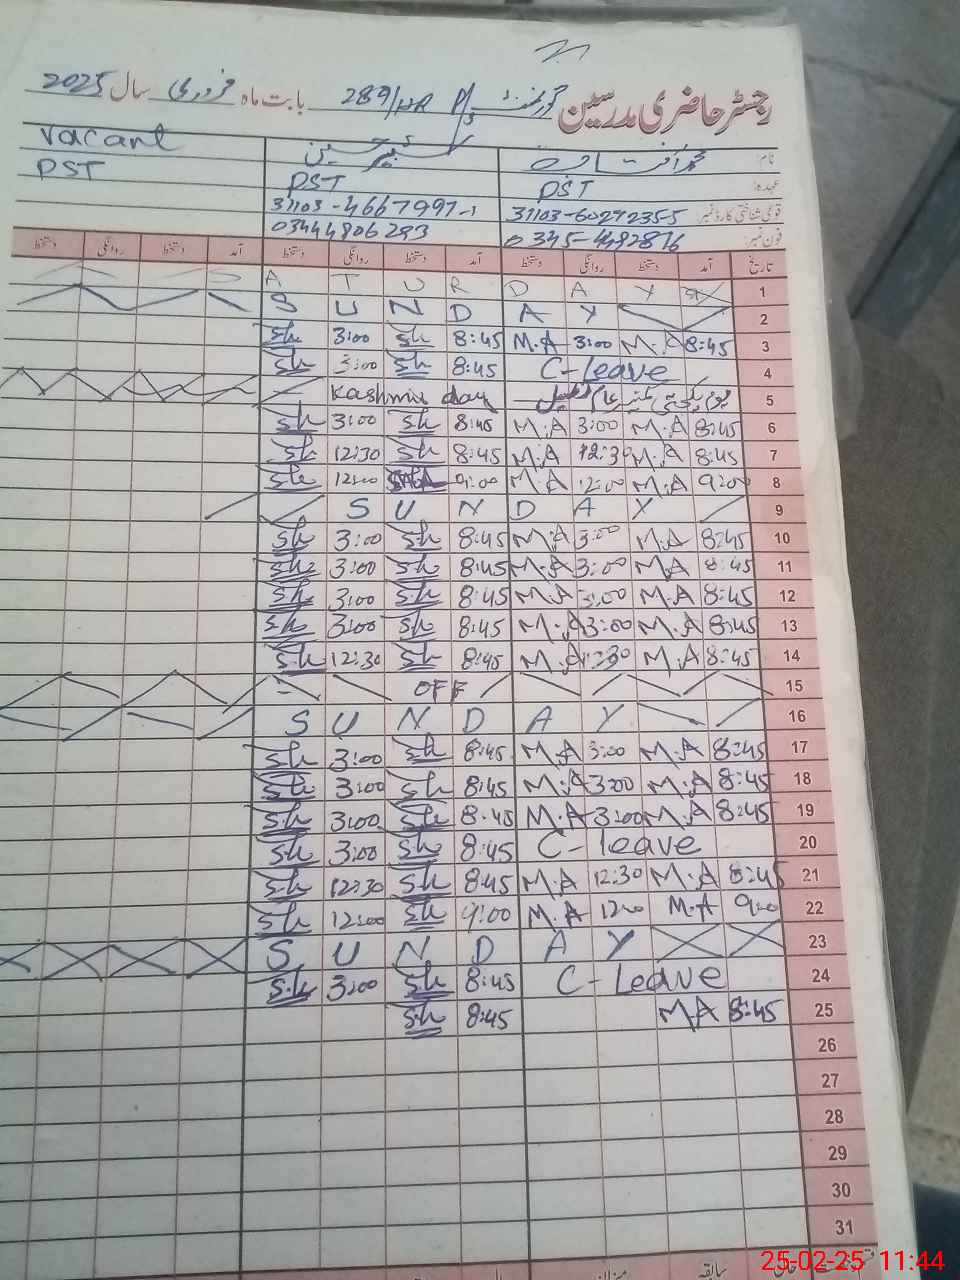 رجسٹر حاضری مدرسین گورنمنٹ P/S 289/HR بابت ماہ فروری سال 2025
نام: vacant
عہدہ: PST PST PST
قومی شناختی کارڈ نمبر: 31103-6029235-5 31103-4667997-1
فون نمبر: 0345-4492876 03444806293
تاریخ آمد دستخط روانگی دستخط آمد دستخط روانگی دستخط آمد دستخط روانگی دستخط
1 S A T U R D A Y
2 S U N D A Y
3 8:45 M.A 3:00 M.A 8:45 Sh 3:00 Sh
4 C-Leave 8:45 Sh 3:00 Sh
5 یوم یکجہتی کشمیر عام تعطیل Kashmir day
6 8:45 M.A 3:00 M.A 8:45 Sh 3:00 Sh
7 8:45 M.A 12:30 M.A 8:45 Sh 12:30 Sh
8 9:00 M.A 12:00 M.A 9:00 12:00 Sh
9 S U N D A Y
10 8:45 M.A 3:00 M.A 8:45 Sh 3:00 Sh
11 8:45 M.A 3:00 M.A 8:45 Sh 3:00 Sh
12 8:45 M.A 3:00 M.A 8:45 Sh 3:00 Sh
13 8:45 M.A 3:00 M.A 8:45 Sh 3:00 Sh
14 8:45 M.A 12:30 M.A 8:45 Sh 12:30 Sh
15 OFF
16 S U N D A Y
17 8:45 M.A 3:00 M.A 8:45 Sh 3:00 Sh
18 8:45 M.A 3:00 M.A 8:45 Sh 3:00 Sh
19 8:45 M.A 3:00 M.A 8:45 Sh 3:00 Sh
20 C-leave 8:45 Sh 3:00 Sh
21 8:45 M.A 12:30 M.A 8:45 Sh 12:30 Sh
22 9:00 M.A 12:00 M.A 9:00 Sh 12:00 Sh
23 S U N D A Y
24 C-Leave 8:45 Sh 3:00 Sh
25 8:45 M.A 8:45 Sh
26
27
28
29
30
31
سابقہ میزان
25-02-25 11:44